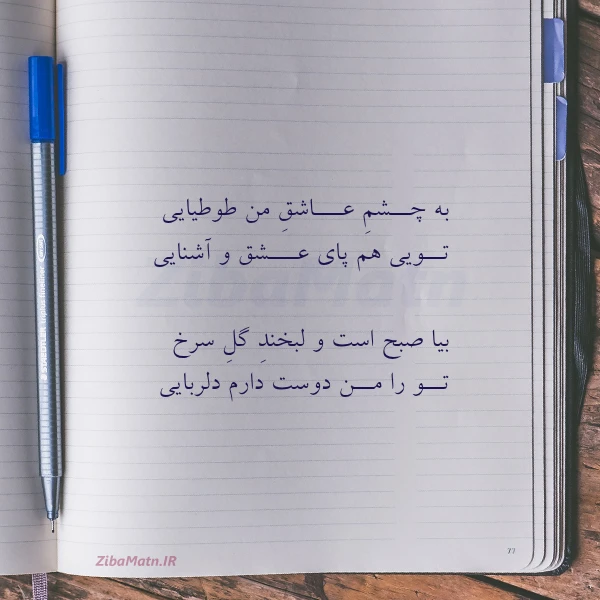 به چـــشمِ عـــاشقِ من طوطیایی
تـــویی هم پای عـــشق و آشنایی
بیا صبح است و لبخندِ گلِ سرخ
تـــو را مـــن دوست دارم دلربایی
77
ZibaMatn.IR